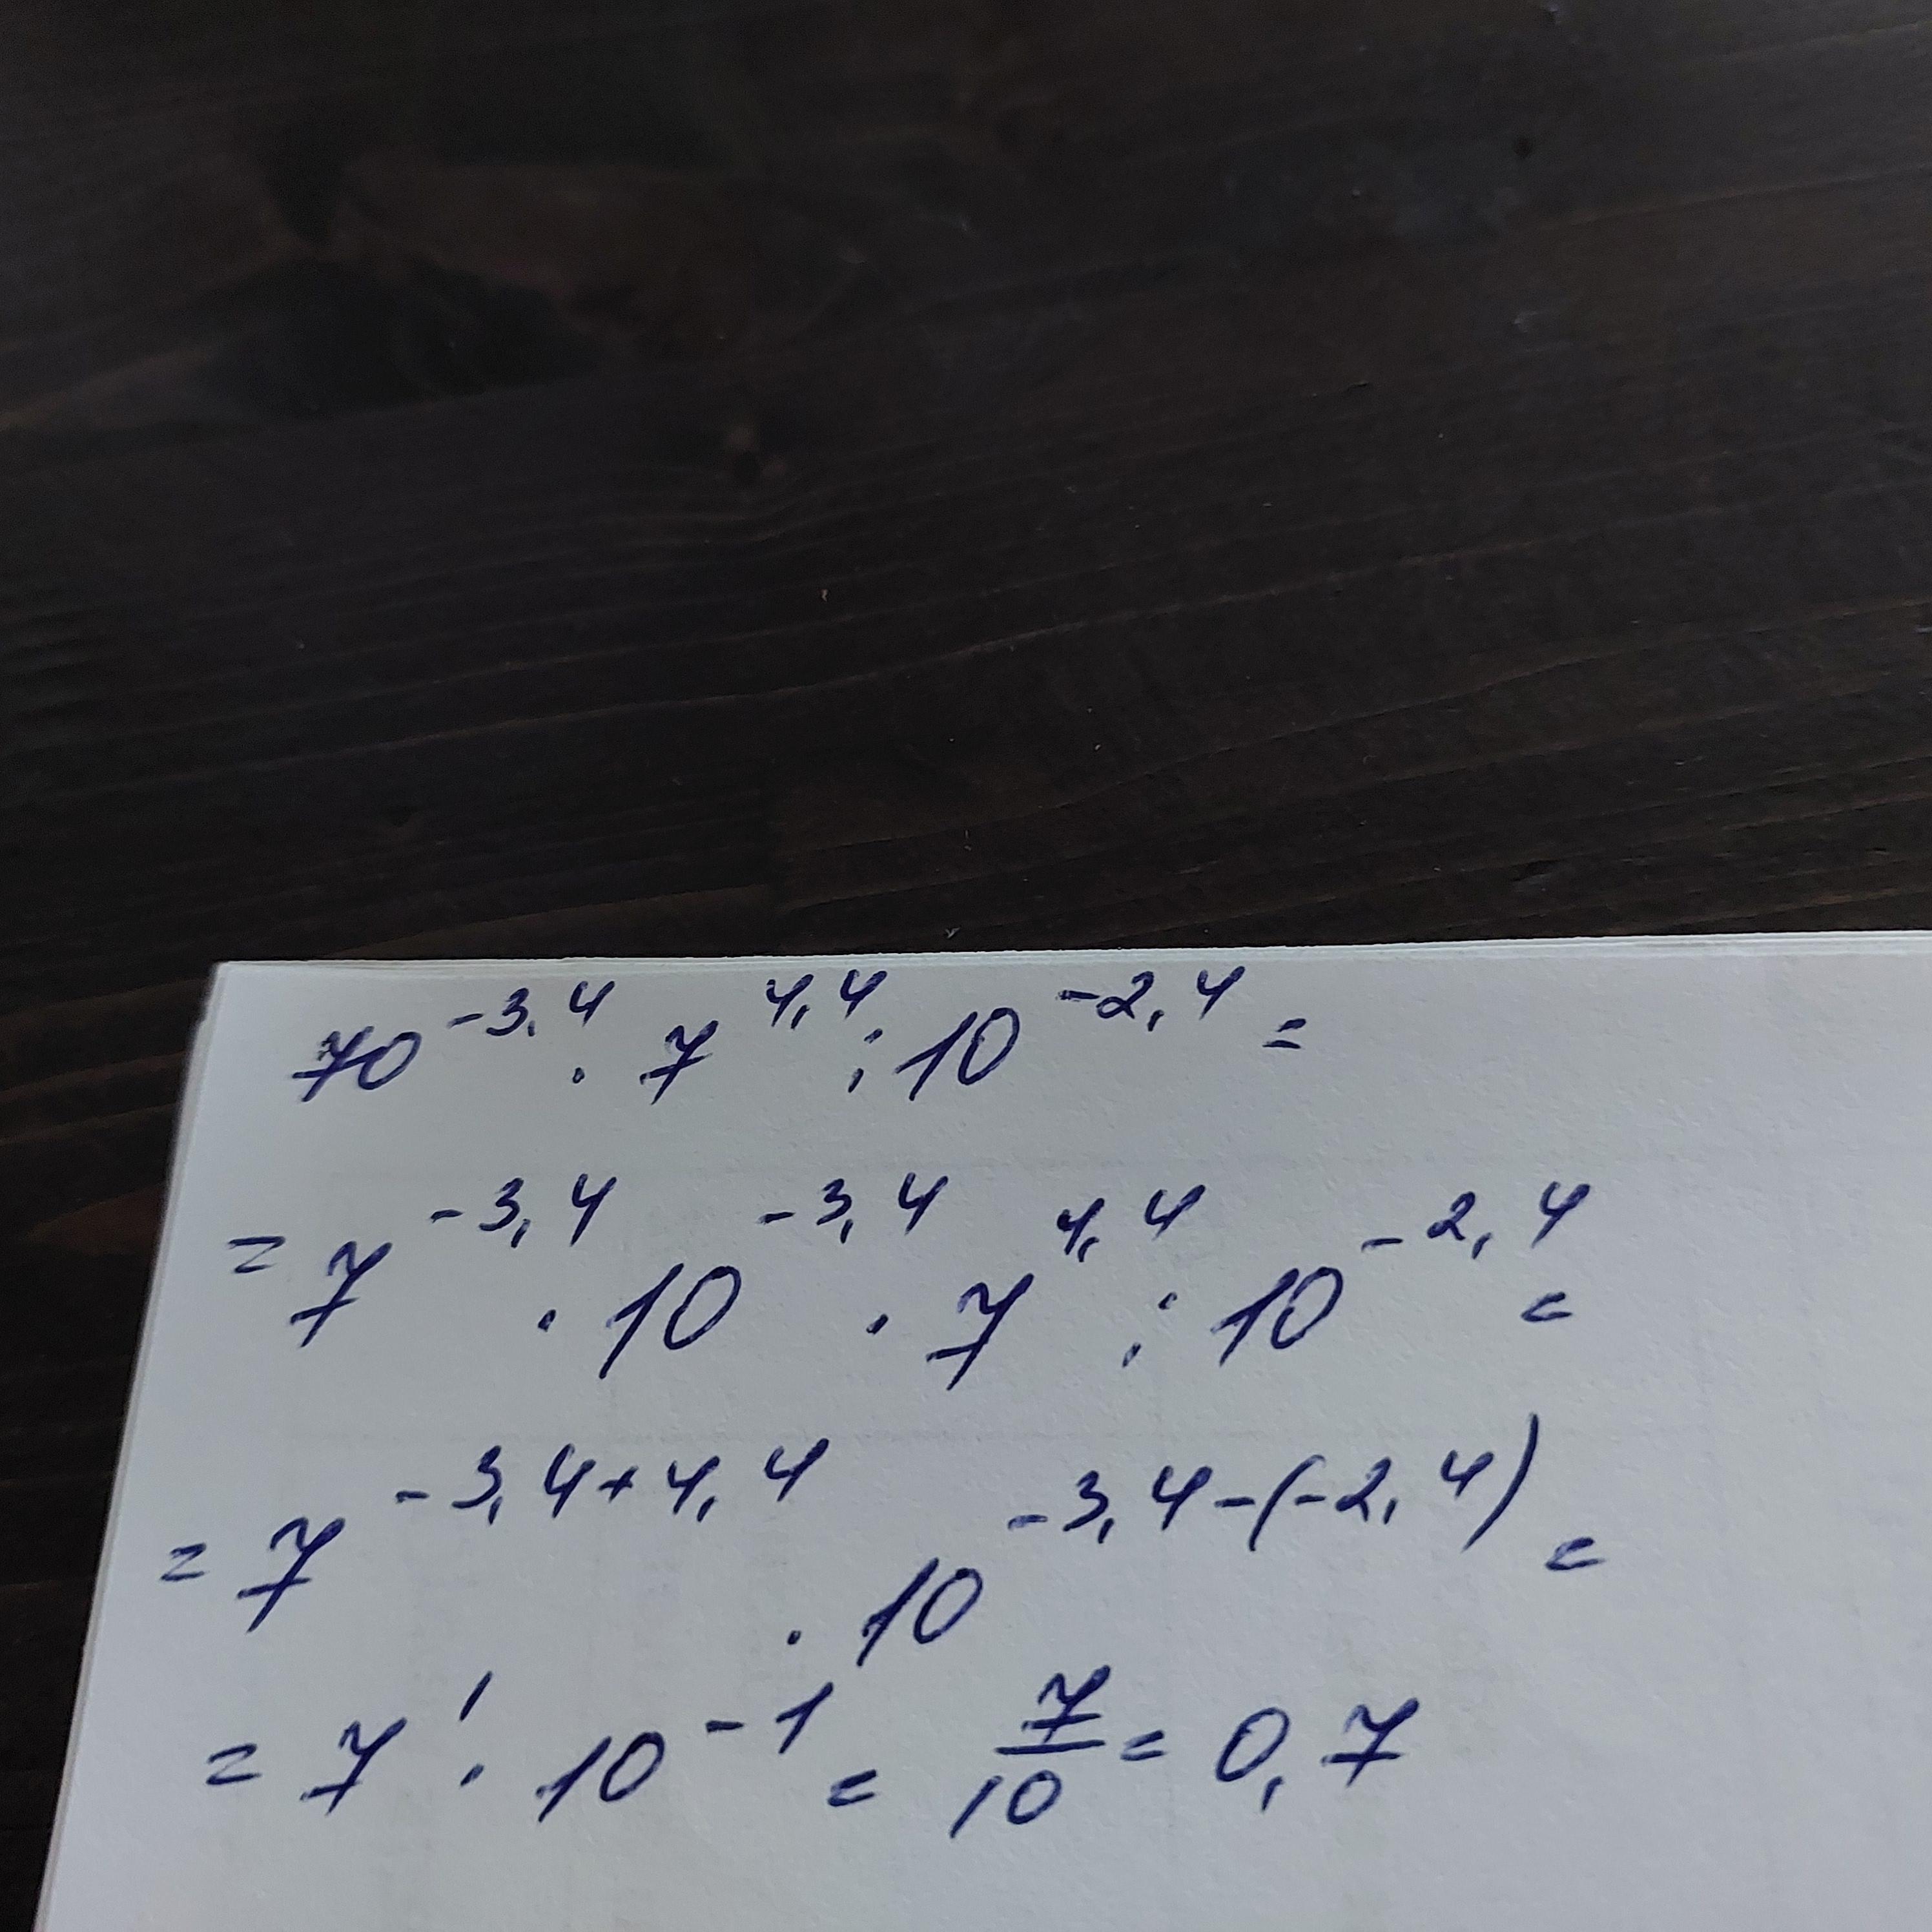 70^{-3,4} · 7^{4,4} : 10^{-2,4} =
= 7^{-3,4} · 10^{-3,4} · 7^{4,4} : 10^{-2,4} =
= 7^{-3,4+4,4} · 10^{-3,4-(-2,4)} =
= 7^1 · 10^{-1} = 7/10 = 0,7